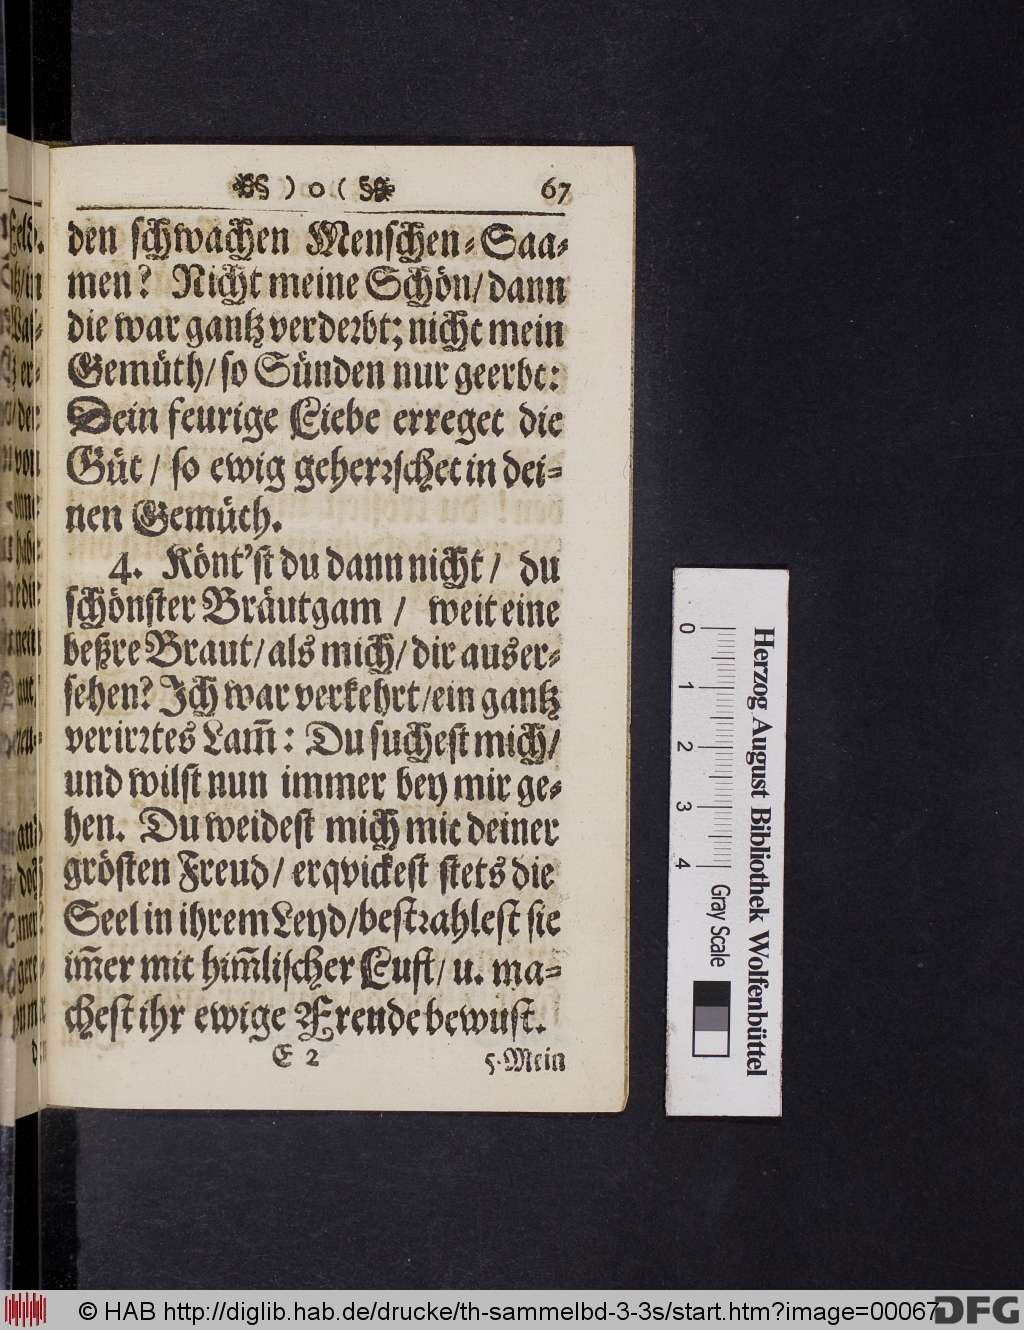 ) o ( 67
den schwachen Menschen-Saa-
men? Nicht meine Schön/ dann
die war gantz verderbt; nicht mein
Gemüth/ so Sünden nur geerbt:
Dein feurige Liebe erreget die
Güt / so ewig geherrschet in dei-
nen Gemüth.
4. Könt'st du dann nicht / du
schönster Bräutgam / weit eine
beßre Braut/ als mich/ dir auser-
sehen? Ich war verkehrt/ ein gantz
verirrtes Lam̃: Du suchest mich/
und wilst nun immer bey mir ge-
hen. Du weidest mich mit deiner
grösten Freud/ erqvickest stets die
Seel in ihrem Leyd/ bestrahlest sie
im̃er mit him̃lischer Lust/ u. ma-
chest ihr ewige Freude bewust.
E 2 5. Mein
0 1 2 3 4
Gray Scale
Herzog August Bibliothek Wolfenbüttel
© HAB http://diglib.hab.de/drucke/th-sammelbd-3-3s/start.htm?image=00067
DFG